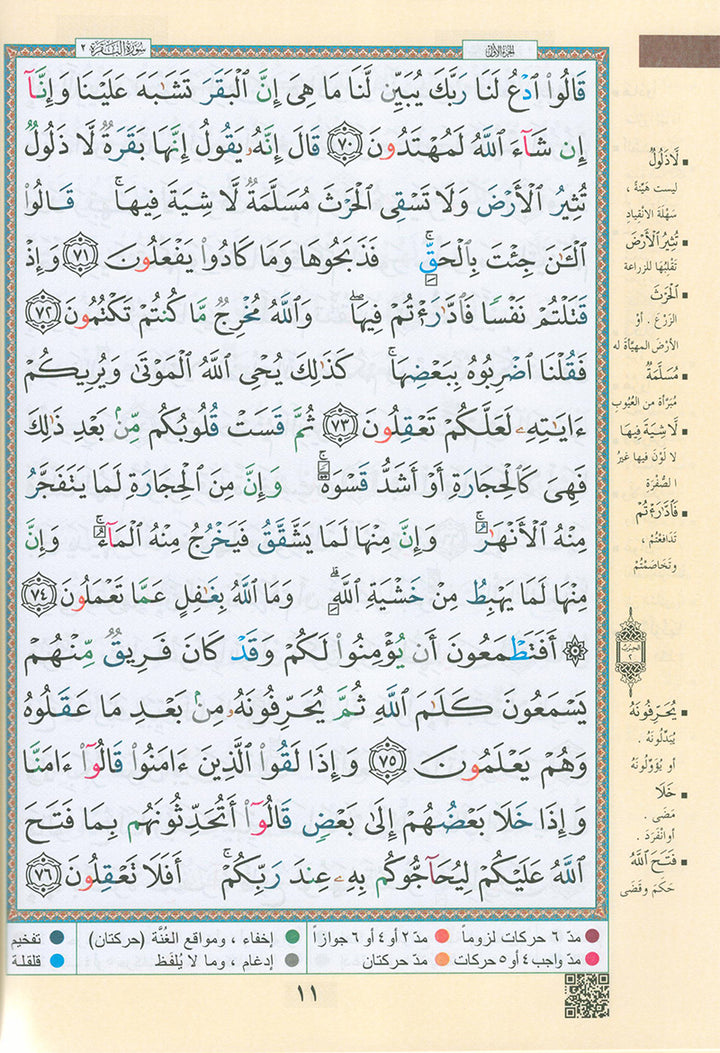 سُورَةُ البَقَرَة ٢
الجزء الأول
قَالُوا۟ ٱدْعُ لَنَا رَبَّكَ يُبَيِّن لَّنَا مَا هِىَ إِنَّ ٱلْبَقَرَ تَشَٰبَهَ عَلَيْنَا وَإِنَّآ
إِن شَآءَ ٱللَّهُ لَمُهْتَدُونَ ٧٠ قَالَ إِنَّهُۥ يَقُولُ إِنَّهَا بَقَرَةٌ لَّا ذَلُولٌ
تُثِيرُ ٱلْأَرْضَ وَلَا تَسْقِى ٱلْحَرْثَ مُسَلَّمَةٌ لَّا شِيَةَ فِيهَا ۚ قَالُوا۟
ٱلْـَٰٔنَ جِئْتَ بِٱلْحَقِّ ۚ فَذَبَحُوهَا وَمَا كَادُوا۟ يَفْعَلُونَ ٧١ وَإِذْ
قَتَلْتُمْ نَفْسًا فَٱدَّٰرَْٰٔتُمْ فِيهَا ۖ وَٱللَّهُ مُخْرِجٌ مَّا كُنتُمْ تَكْتُمُونَ ٧٢
فَقُلْنَا ٱضْرِبُوهُ بِبَعْضِهَا ۚ كَذَٰلِكَ يُحْىِ ٱللَّهُ ٱلْمَوْتَىٰ وَيُرِيكُمْ
ءَايَٰتِهِۦ لَعَلَّكُمْ تَعْقِلُونَ ٧٣ ثُمَّ قَسَتْ قُلُوبُكُم مِّنۢ بَعْدِ ذَٰلِكَ
فَهِىَ كَٱلْحِجَارَةِ أَوْ أَشَدُّ قَسْوَةً ۚ وَإِنَّ مِنَ ٱلْحِجَارَةِ لَمَا يَتَفَجَّرُ
مِنْهُ ٱلْأَنْهَٰرُ ۚ وَإِنَّ مِنْهَا لَمَا يَشَّقَّقُ فَيَخْرُجُ مِنْهُ ٱلْمَآءُ ۚ وَإِنَّ
مِنْهَا لَمَا يَهْبِطُ مِنْ خَشْيَةِ ٱللَّهِ ۗ وَمَا ٱللَّهُ بِغَٰفِلٍ عَمَّا تَعْمَلُونَ ٧٤
۞ أَفَتَطْمَعُونَ أَن يُؤْمِنُوا۟ لَكُمْ وَقَدْ كَانَ فَرِيقٌ مِّنْهُمْ
يَسْمَعُونَ كَلَٰمَ ٱللَّهِ ثُمَّ يُحَرِّفُونَهُۥ مِنۢ بَعْدِ مَا عَقَلُوهُ
وَهُمْ يَعْلَمُونَ ٧٥ وَإِذَا لَقُوا۟ ٱلَّذِينَ ءَامَنُوا۟ قَالُوٓا۟ ءَامَنَّا
وَإِذَا خَلَا بَعْضُهُمْ إِلَىٰ بَعْضٍ قَالُوٓا۟ أَتُحَدِّثُونَهُم بِمَا فَتَحَ
ٱللَّهُ عَلَيْكُمْ لِيُحَآجُّوكُم بِهِۦ عِندَ رَبِّكُمْ ۚ أَفَلَا تَعْقِلُونَ ٧٦
لَّا ذَلُولٌ
ليست هَيِّنةً ،
سَهْلَةَ الانْقِياد
تُثِيرُ ٱلْأَرْضَ
تَقْلِبُهَا للزراعة
ٱلْحَرْثَ
الزَرْعَ . أوْ
الأرضَ المهيّأةَ له
مُسَلَّمَةٌ
مُبَرَّأة من العُيوبِ
لَّا شِيَةَ فِيهَا
لا لَوْنَ فيها غيرُ
الصُّفْرَة
فَٱدَّٰرَْٰٔتُمْ
تَدَافَعْتُمْ ،
وتَخَاصَمْتُمْ
الحزب
٢
يُحَرِّفُونَهُ
يُبَدِّلُونَهُ .
أو يُؤَوِّلُونَهُ
خَلَا
مَضَى .
أو انْفَرَدَ .
فَتَحَ ٱللَّهُ
حَكَمَ وقَضَى
مدّ ٦ حركات لزوماً مدّ ٢ أو ٤ أو ٦ جوازاً إخفاء ، ومواقع الغُنَّة (حركتان) تفخيم
مدّ واجب ٤ أو ٥ حركات مدّ حركتان إدغام ، وما لا يُلفَظ قلقلة
١١